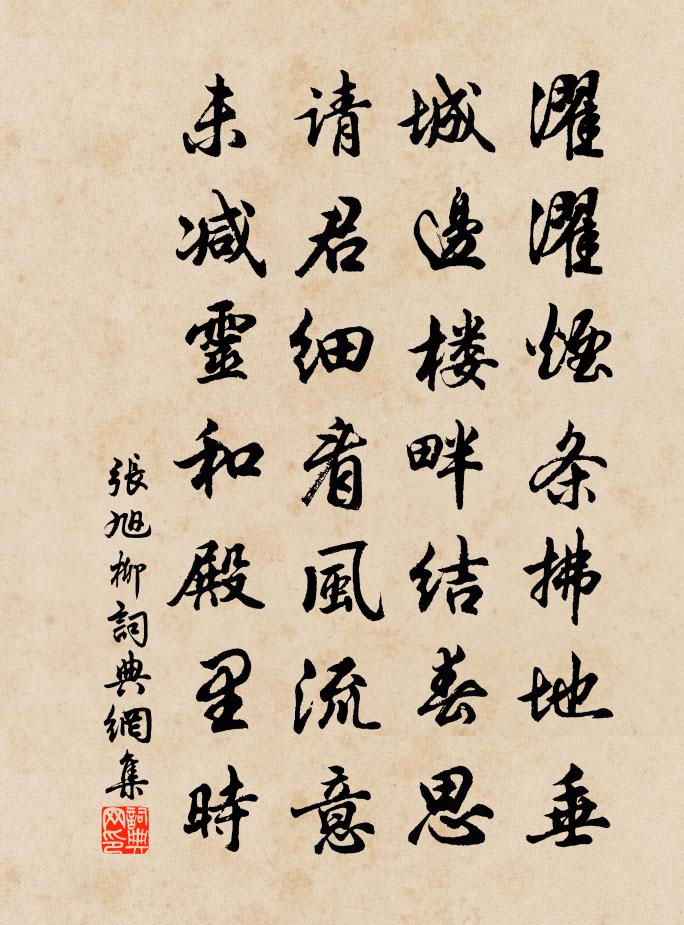 濯濯煙条拂地垂
城邊楼畔结春思
请君细看風流意
未减靈和殿里時
張旭柳詞典網集
詞典网印